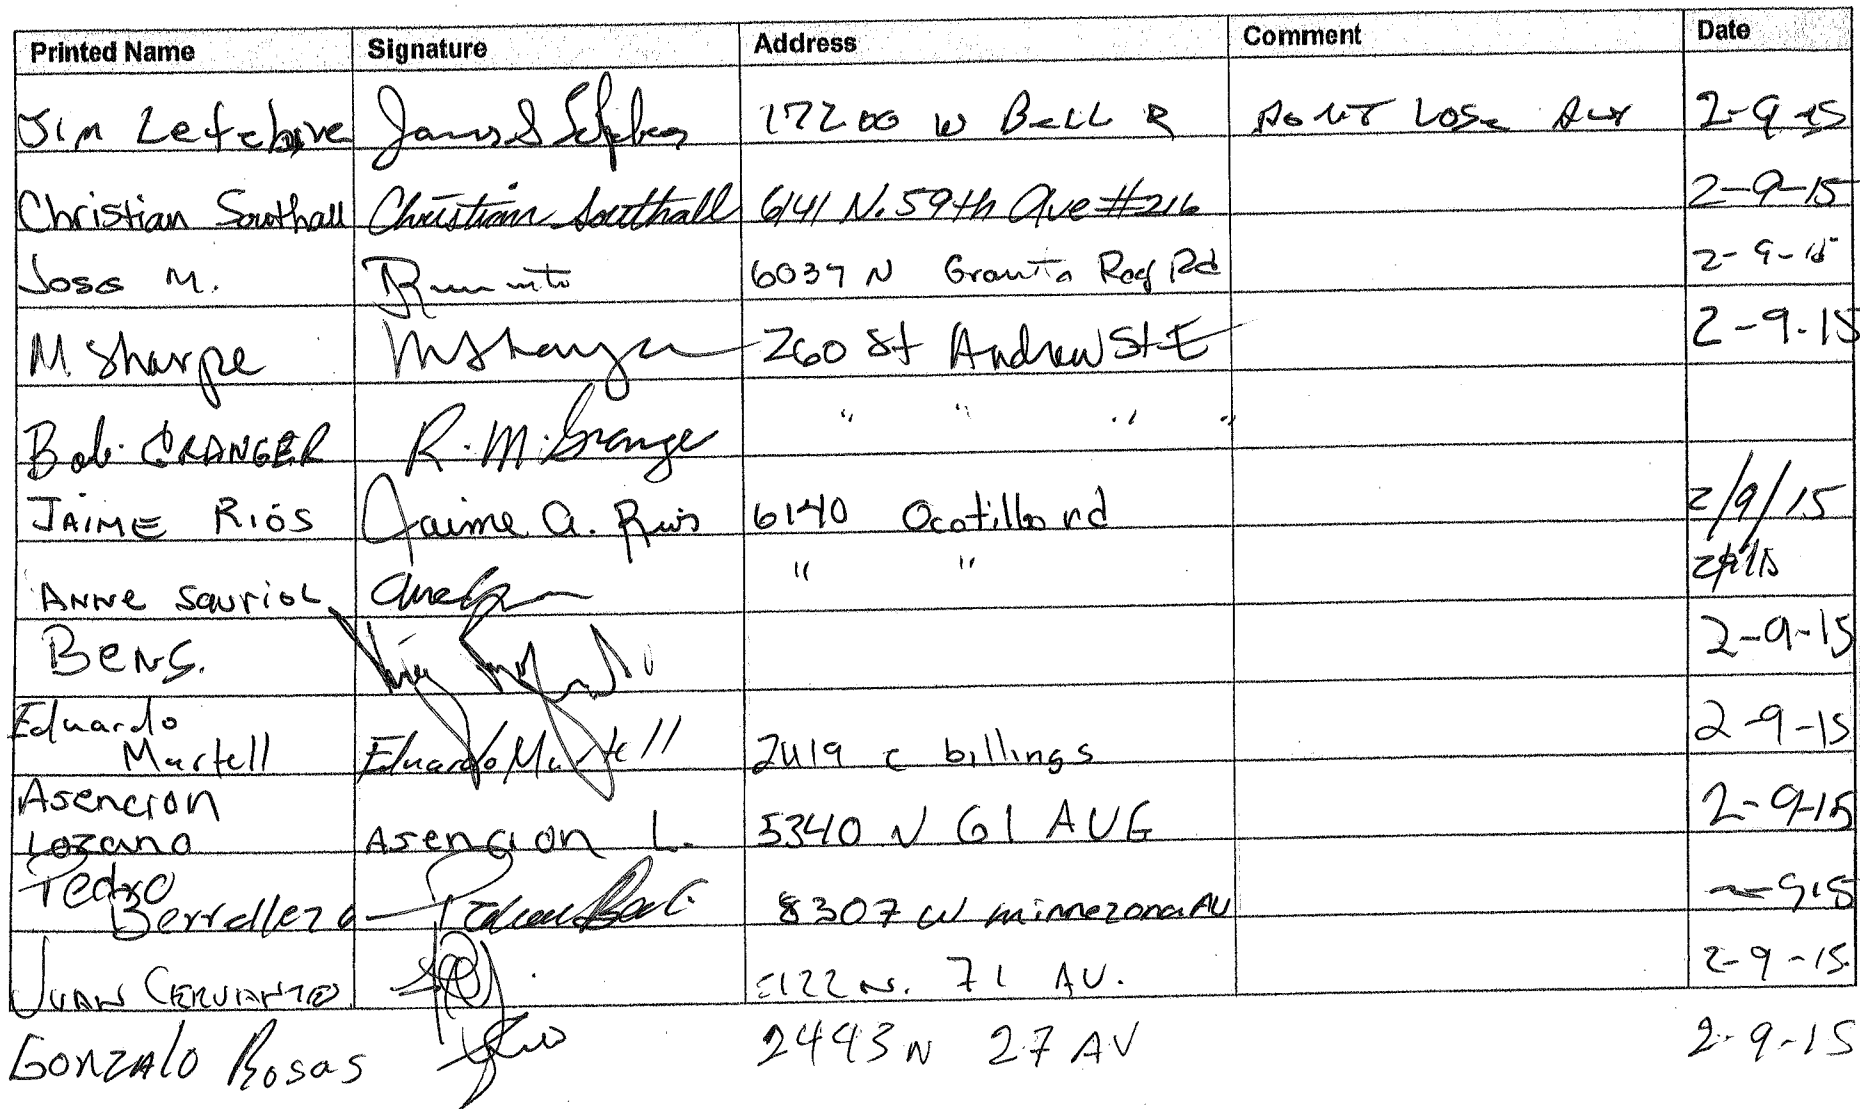 Printed Name Signature Address Comment Date
Jim Lefebvre 17200 W Bell R DONT LOSE 2-9-15
Christian Southall Christian Southall 6141 N. 59th Ave #216 2-9-15
Jose M. 6037 N Rd 2-9-15
M Sharpe 260 St Andrew St E 2-9-15
Bob GRANGER R. M. Grange " " " "
JAIME RIOS Jaime A. Rios 6140 Ocotillo rd 2/9/15
ANNE SAURIOL " "
BENS. 2-9-15
Eduardo
Martell Eduardo Martell 2419 billings 2-9-15
Asencion
Lozano Asencion L. 5340 N 61 AVE 2-9-15
Pedro
Berrelleza 8307 W minnezona AV
JUAN CERVANTES N. 71 AV. 2-9-15
GONZALO Rosas 2493 N 27 AV 2-9-15